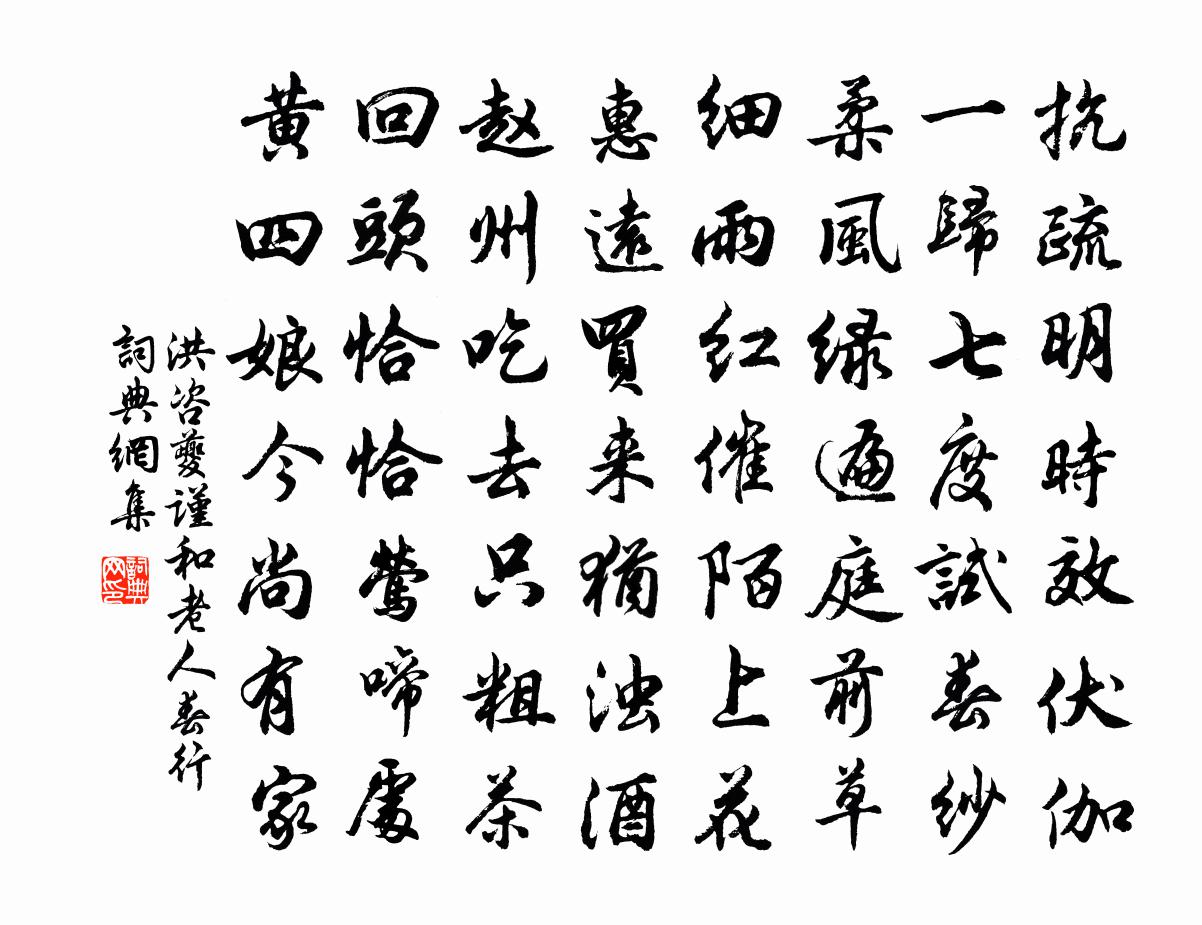 抗疏明時效伏伽
一歸七度試春紗
柔風绿遍庭前草
细雨红催陌上花
惠遠買来猶浊酒
赵州吃去只粗茶
回頭恰恰鶯啼處
黄四娘今尚有家
洪咨夔谨和老人春行
詞典網集
詞典网印